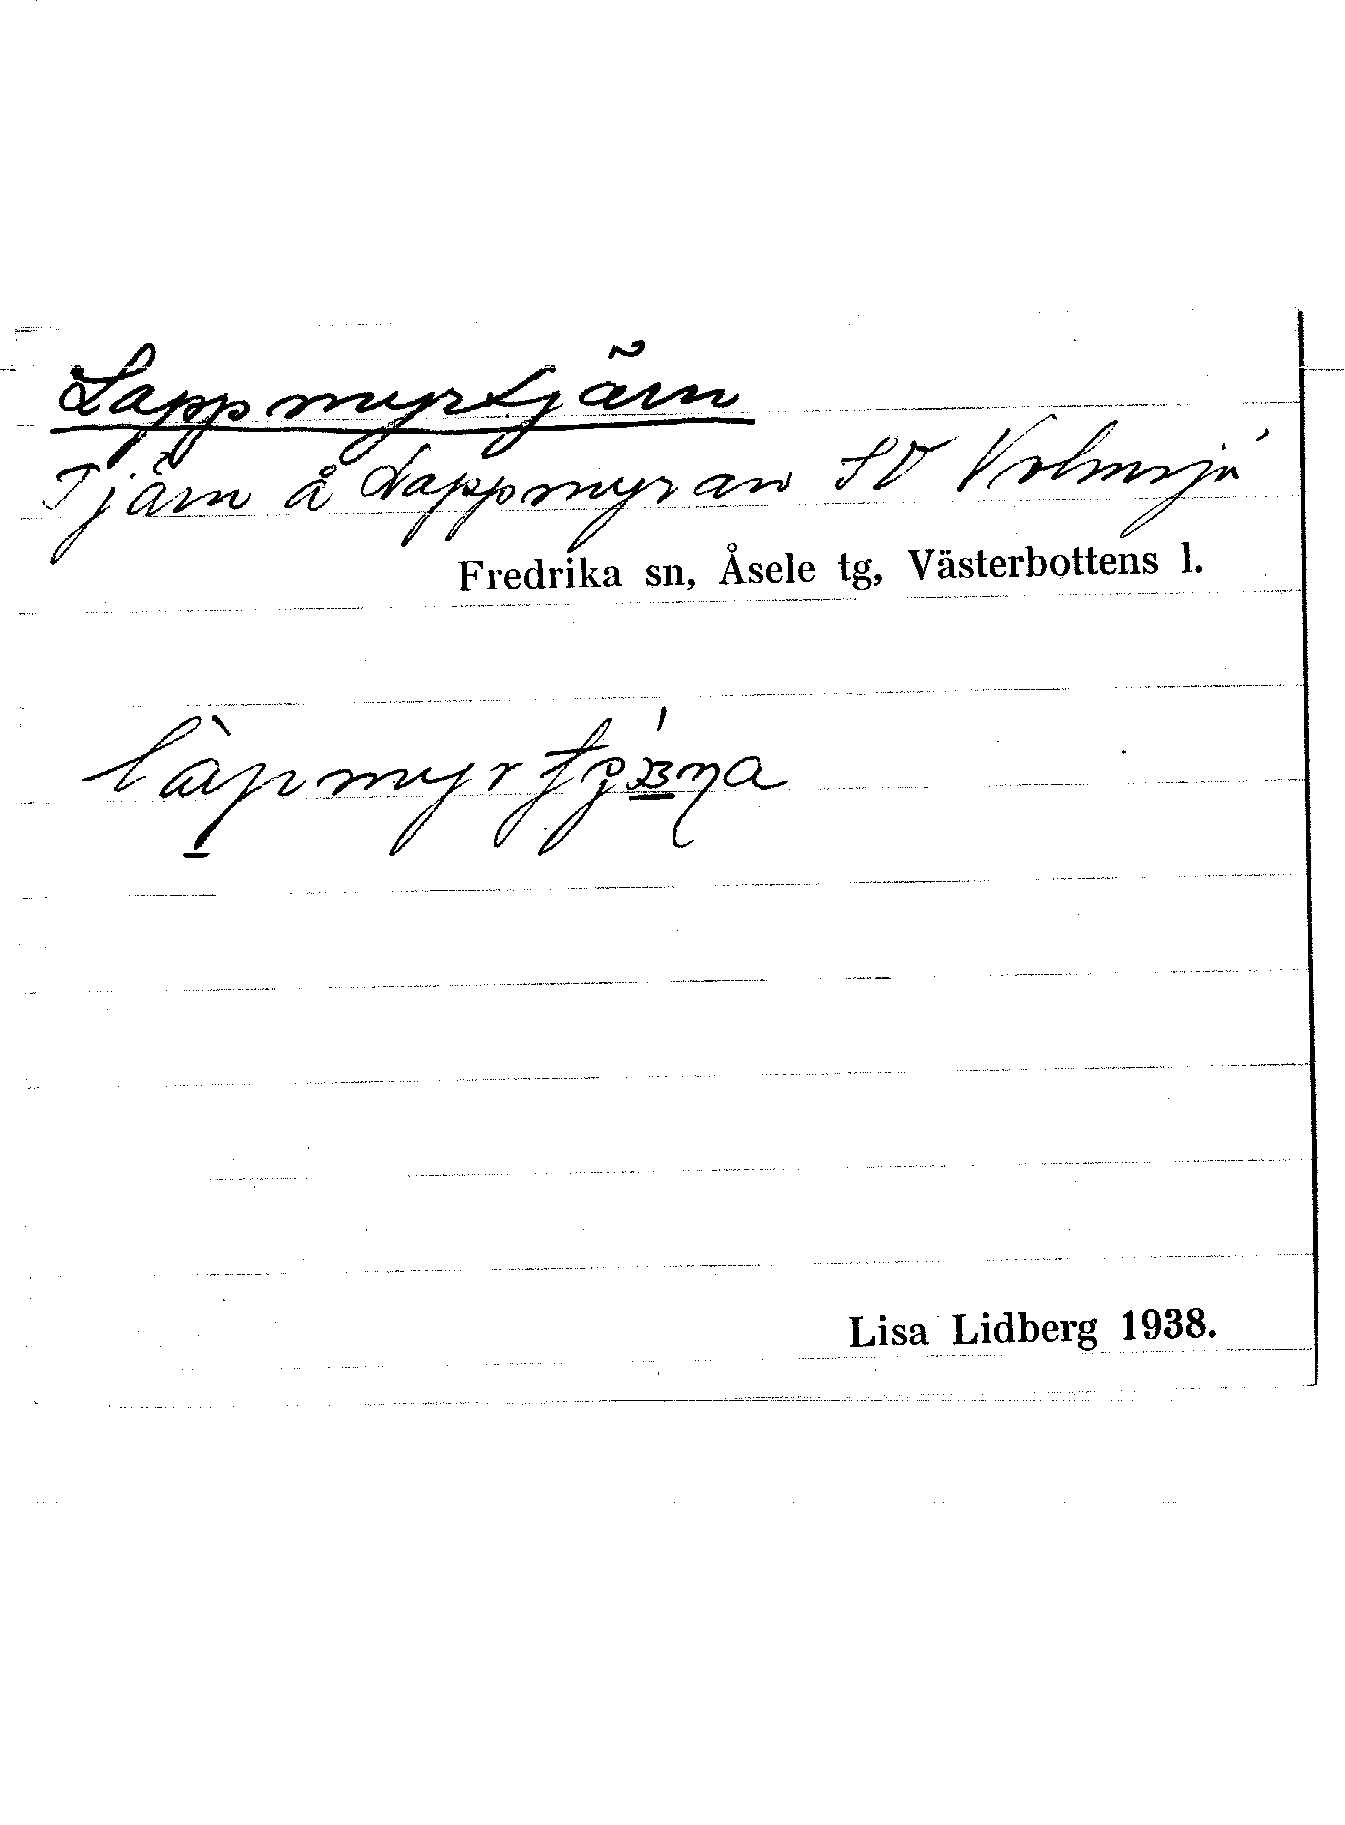 Lappmyrtjärn
Tjärn å Lappmyran SV Volmsjö
Fredrika sn, Åsele tg, Västerbottens l.
Lisa Lidberg 1938.